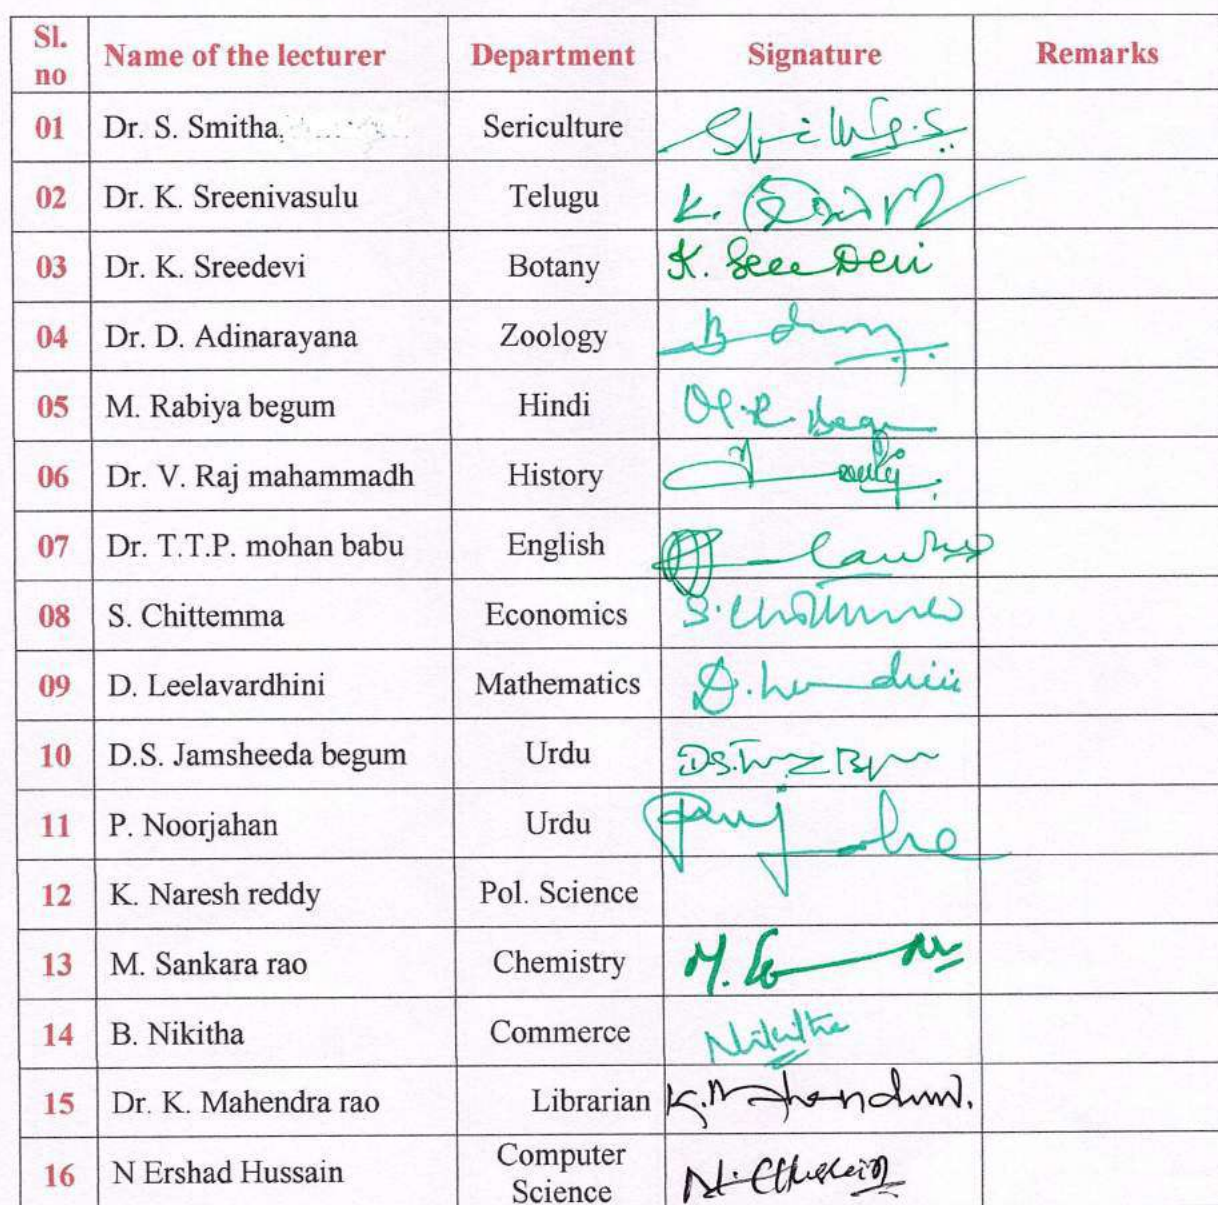 Sl. no Name of the lecturer Department Signature Remarks
01 Dr. S. Smitha Sericulture
02 Dr. K. Sreenivasulu Telugu K.
03 Dr. K. Sreedevi Botany K. Sree Devi
04 Dr. D. Adinarayana Zoology
05 M. Rabiya begum Hindi
06 Dr. V. Raj mahammadh History
07 Dr. T.T.P. mohan babu English
08 S. Chittemma Economics
09 D. Leelavardhini Mathematics
10 D.S. Jamsheeda begum Urdu
11 P. Noorjahan Urdu
12 K. Naresh reddy Pol. Science
13 M. Sankara rao Chemistry
14 B. Nikitha Commerce Nikitha
15 Dr. K. Mahendra rao Librarian
16 N Ershad Hussain Computer Science